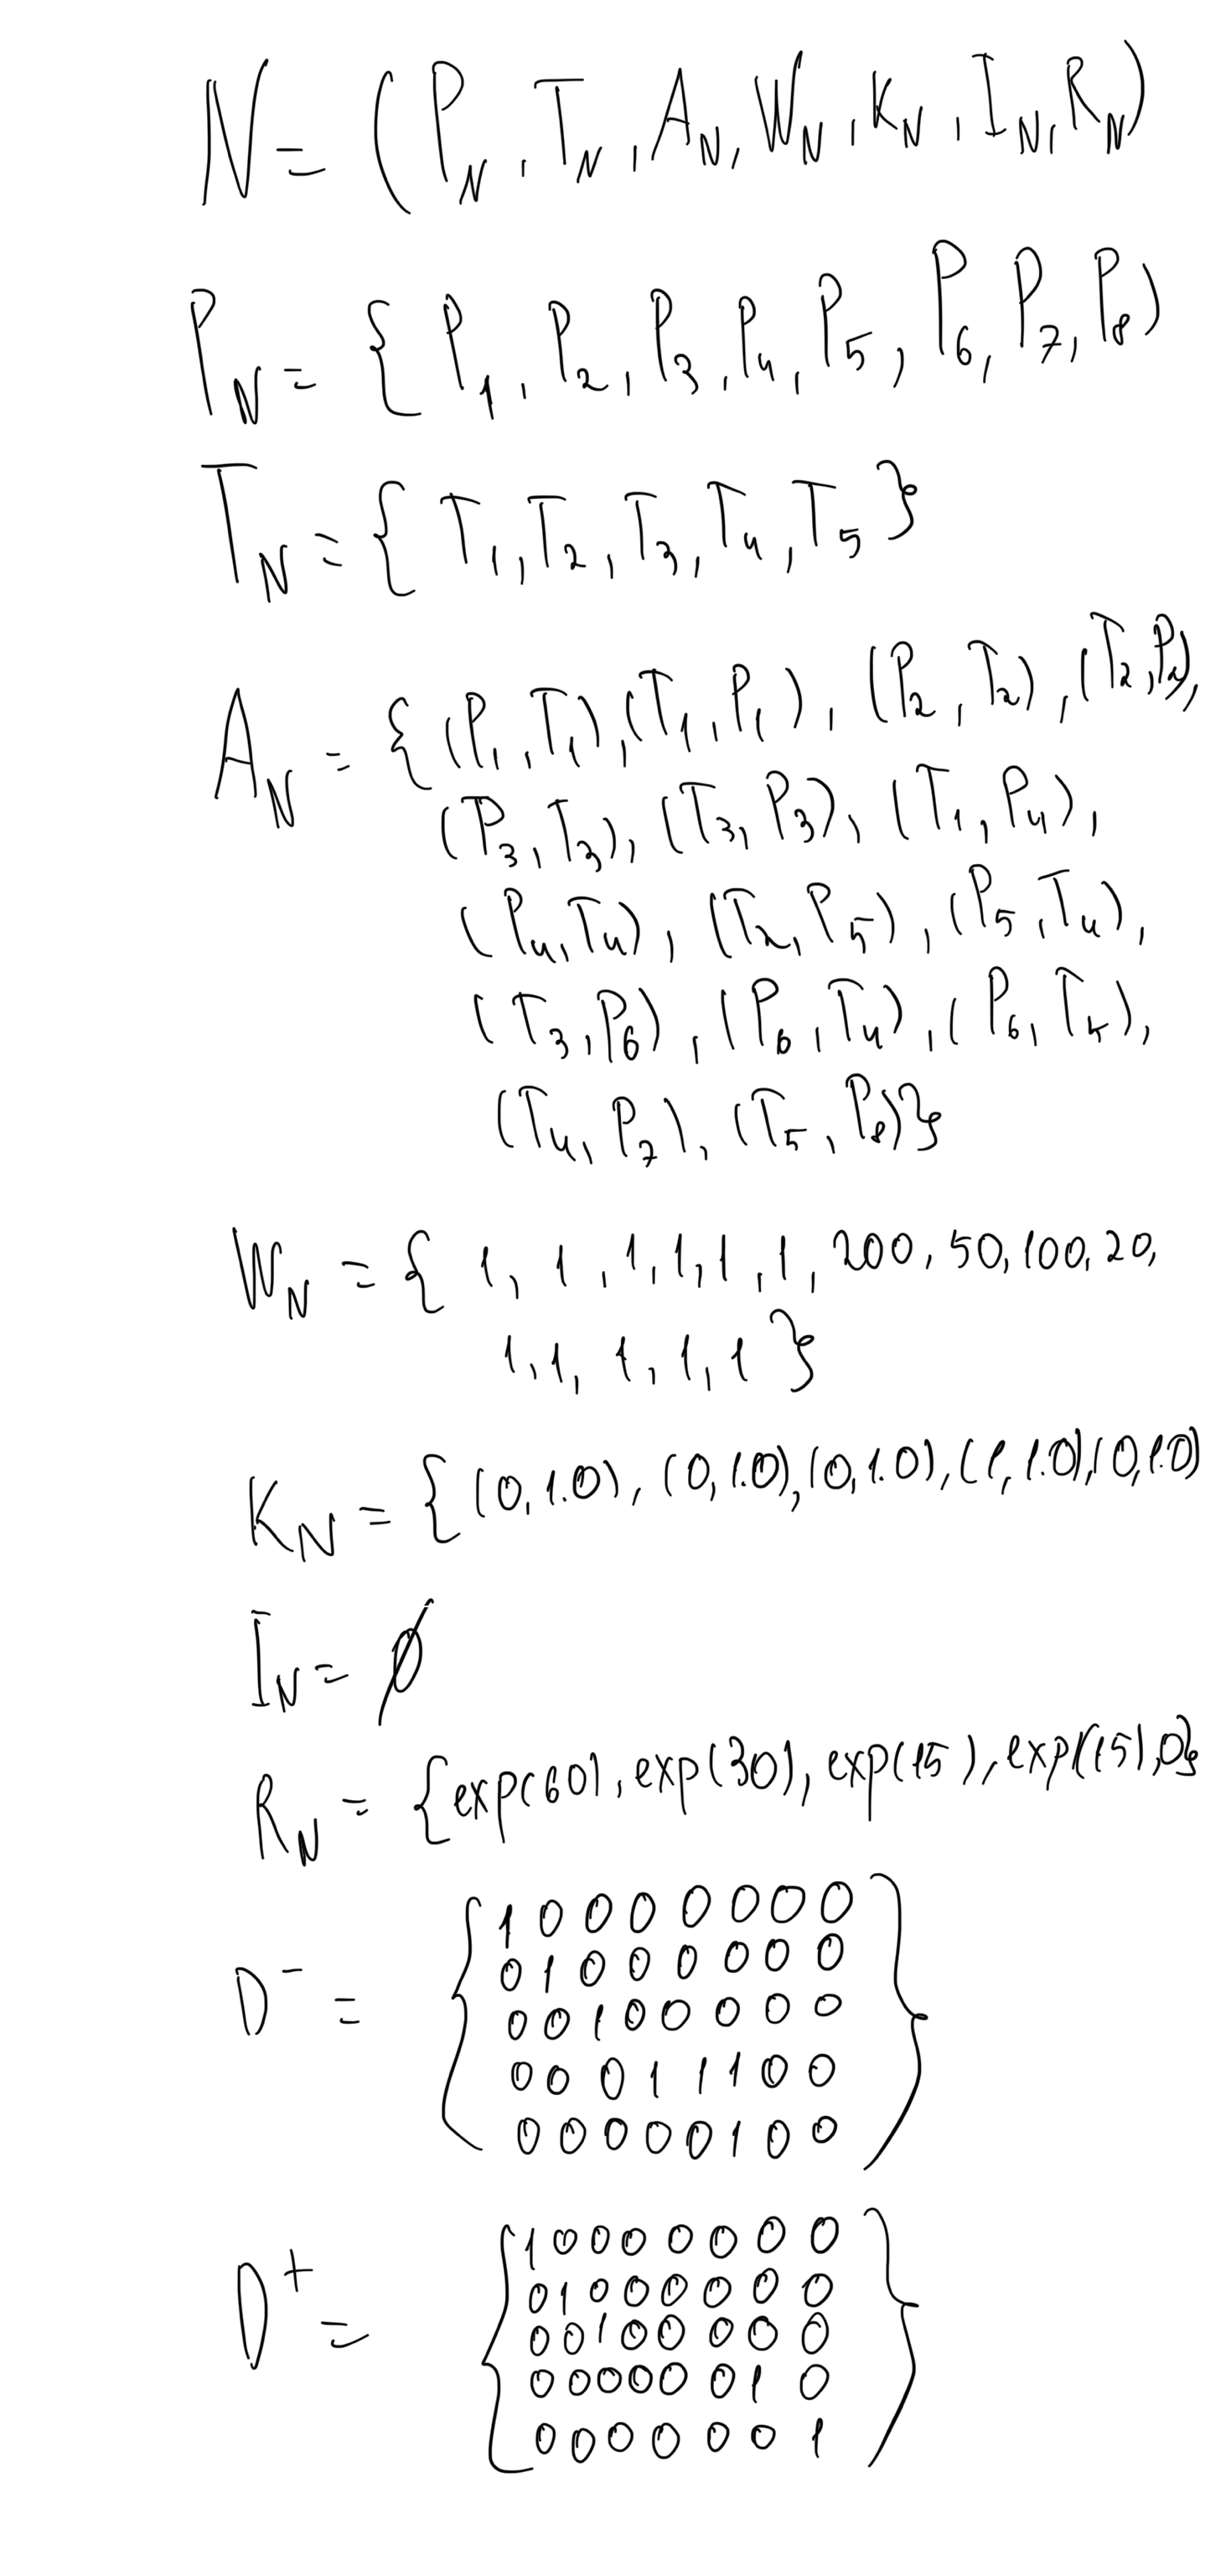 N = (P_N, T_N, A_N, W_N, K_N, I_N, R_N)
P_N = { P_1, P_2, P_3, P_4, P_5, P_6, P_7, P_8 )
T_N = { T_1, T_2, T_3, T_4, T_5 }
A_N = { (P_1, T_1), (T_1, P_1), (P_2, T_2), (T_2, P_2),
(P_3, T_3), (T_3, P_3), (T_1, P_4),
(P_4, T_4), (T_2, P_5), (P_5, T_4),
(T_3, P_6), (P_6, T_4), (P_6, T_5),
(T_4, P_7), (T_5, P_8) }
W_N = { 1, 1, 1, 1, 1, 1, 200, 50, 100, 20,
1, 1, 1, 1, 1 }
K_N = { (0, 1.0), (0, 1.0), (0, 1.0), (1, 1.0), (0, 1.0)
I_N = ∅
R_N = { exp(60), exp(30), exp(15), exp(15), 0}
D^- = { 1 0 0 0 0 0 0 0 }
0 1 0 0 0 0 0 0
0 0 1 0 0 0 0 0
0 0 0 1 1 1 0 0
0 0 0 0 0 1 0 0
D^+ = { 1 0 0 0 0 0 0 0 }
0 1 0 0 0 0 0 0
0 0 1 0 0 0 0 0
0 0 0 0 0 0 1 0
0 0 0 0 0 0 1